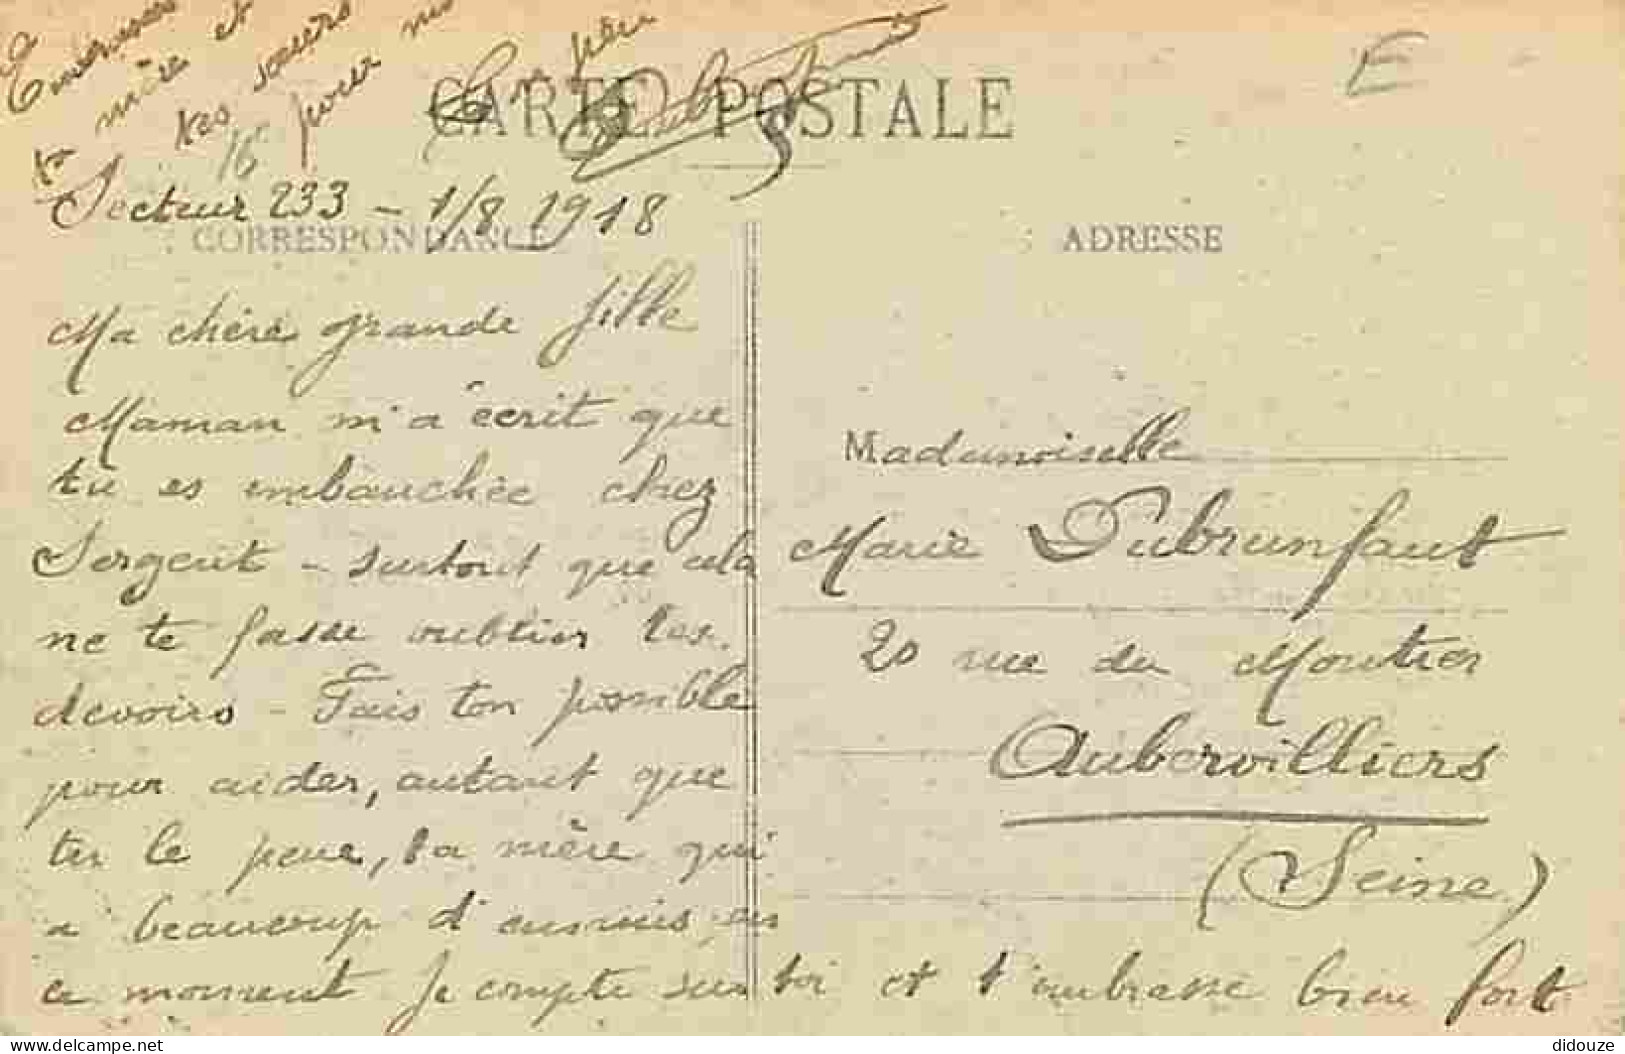 Embrasse
ta mère et
tes sœurs
pour moi
Ton père
Dubrunfaut
E
CARTE POSTALE
16
Secteur 233 - 1/8 1918
CORRESPONDANCE
ADRESSE
Ma chère grande fille
Maman m'a écrit que
tu es embauchée chez
Sergent - surtout que cela
ne te fasse oublier tes
devoirs - Fais ton possible
pour aider, autant que
tu le peux, ta mère qui
a beaucoup d'ennuis en
ce moment Je compte sur toi et t'embrasse bien fort
Mademoiselle
Marie Dubrunfaut
20 rue du Moutier
Aubervilliers
(Seine)
www.delcampe.net
didouze